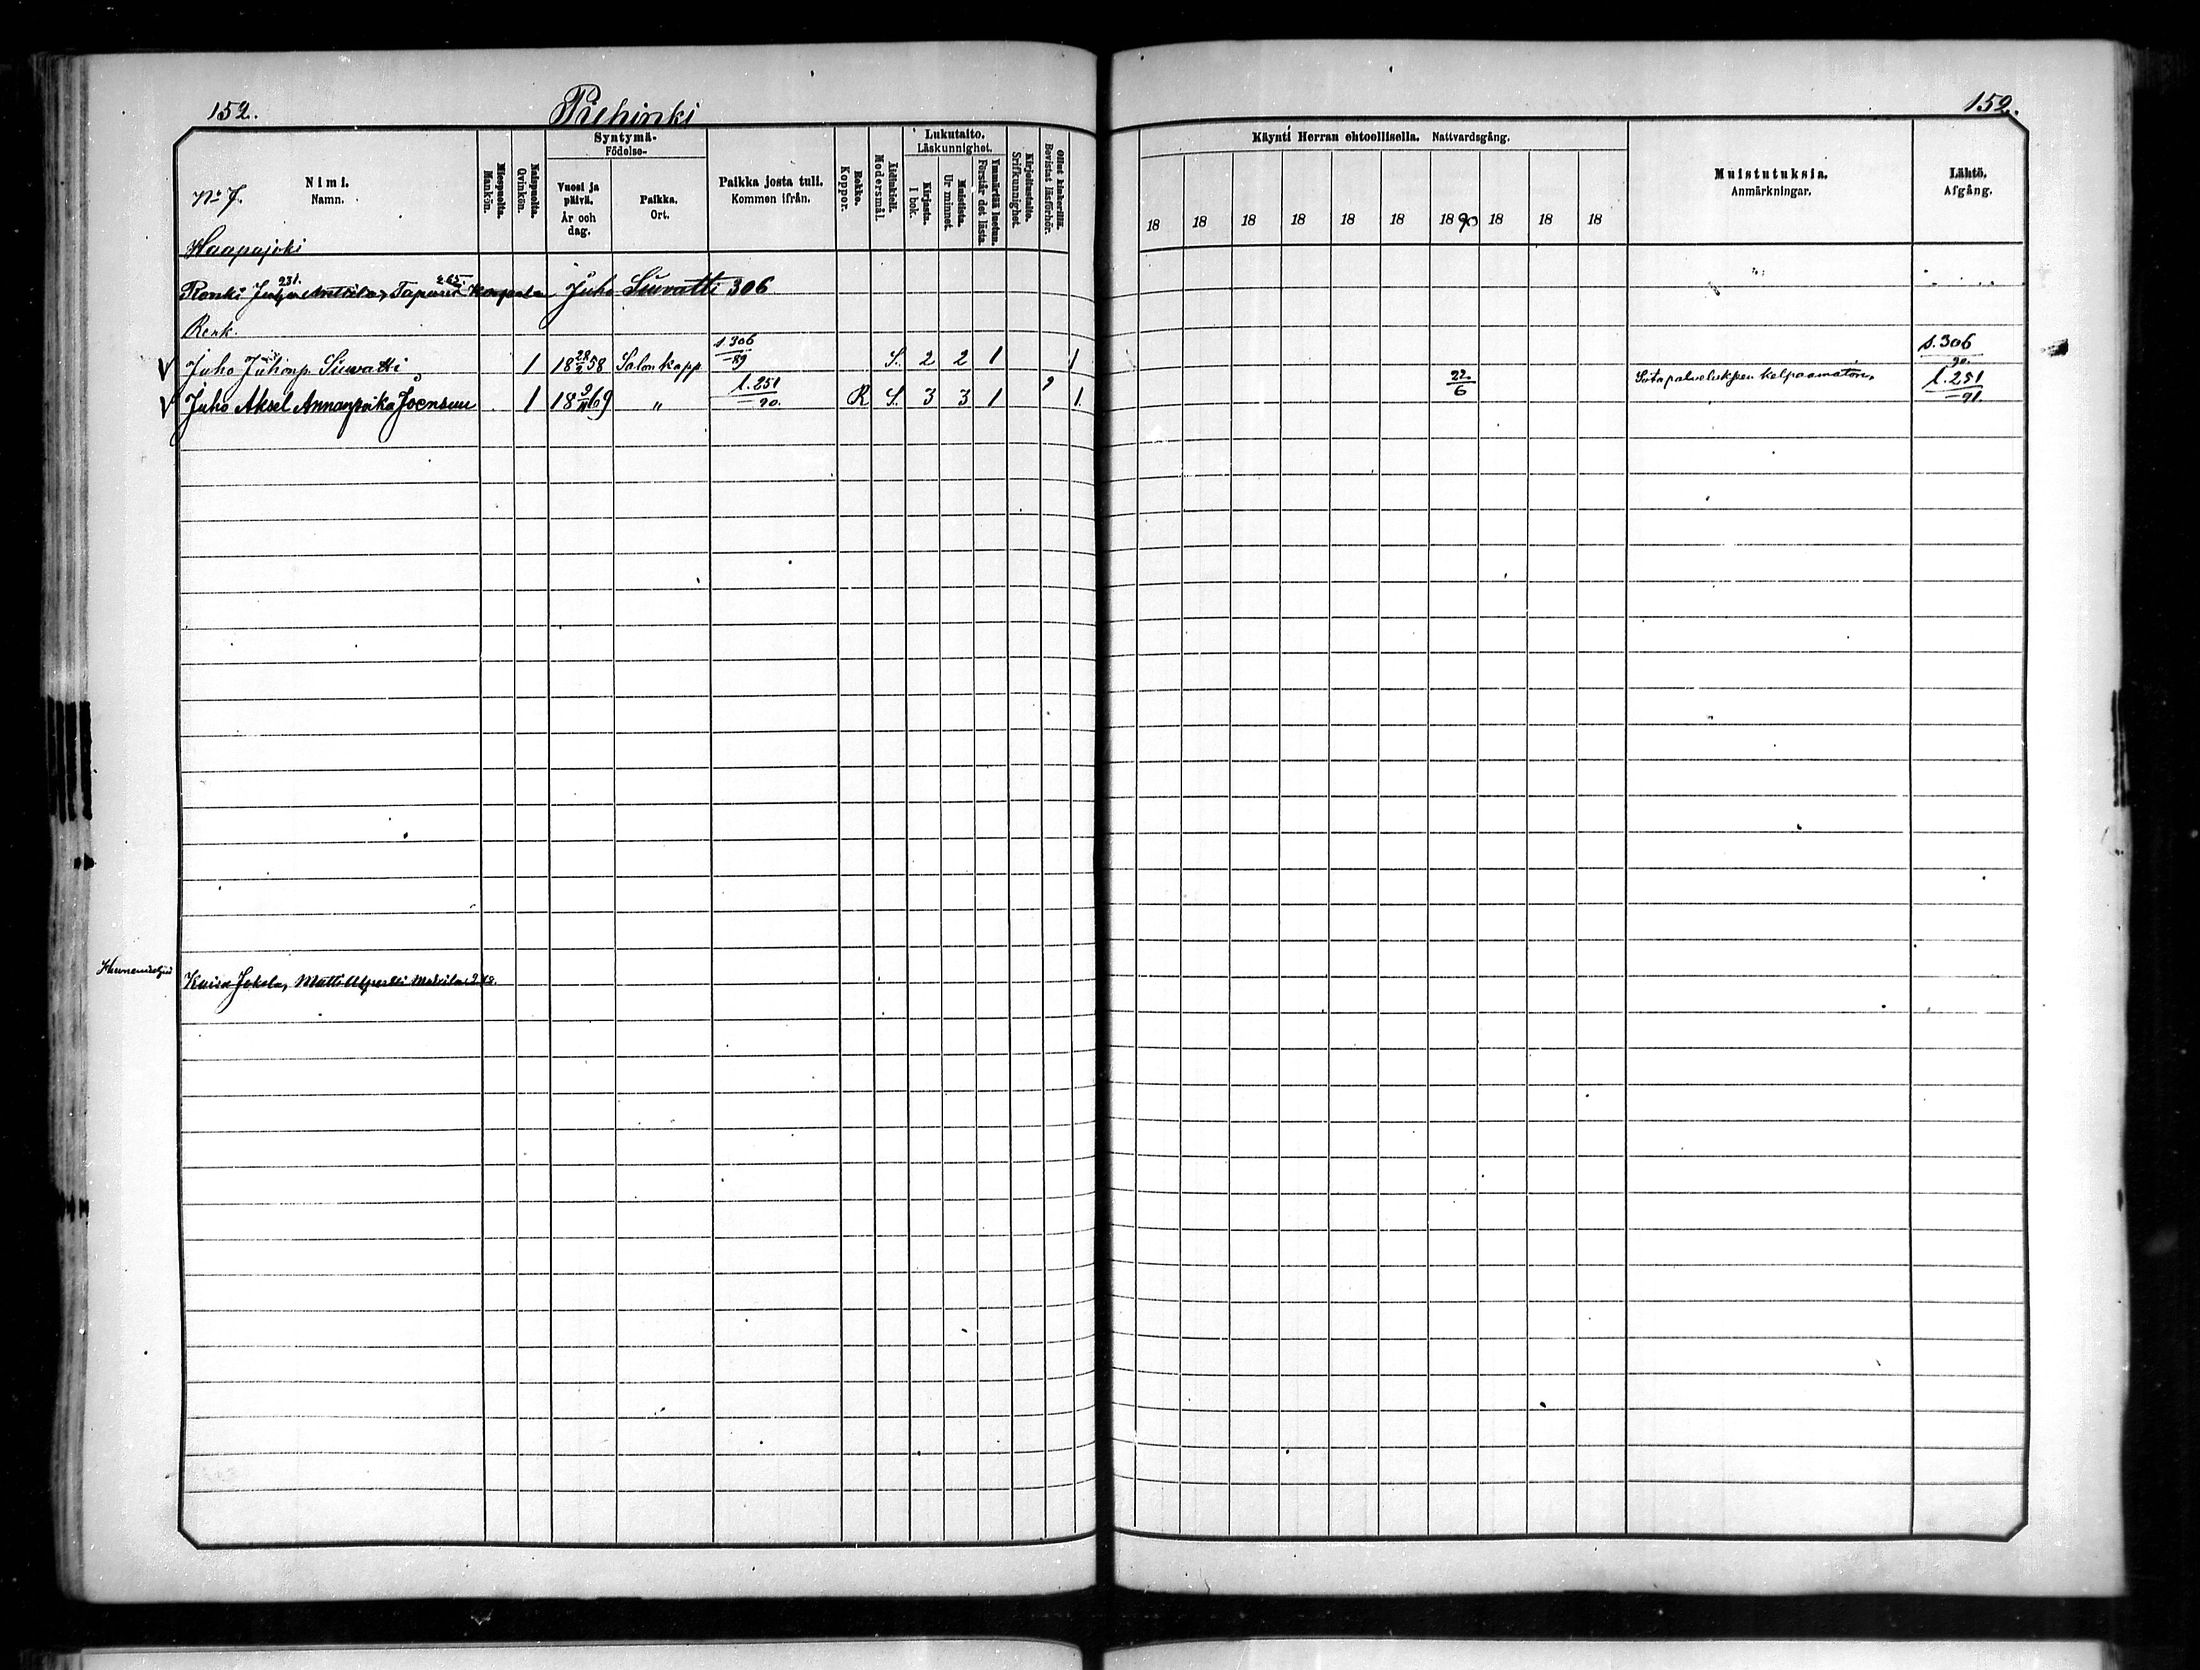 152. Piehinki 152.
Nimi. Namn.
Miespuolta. Mankön.
Naispuolta. Qvinkön.
Syntymä- Födelse-
Vuosi ja päivä. År och dag.
Paikka. Ort.
Paikka josta tuli. Kommen ifrån.
Rokko. Koppor.
Äidinkieli. Modersmål.
Lukutaito. Läskunnighet.
Kirjasta. I bok.
Muistista. Ur minnet.
Ymmärtää luetun. Förstår det lästa.
Kirjoitustaito. Srifkunnighet.
Ollut kinkerillä. Bevistat läsförhör.
Käynti Herran ehtoollisella. Nattvardsgång.
18 18 18 18 18 18 1890 18 18 18
Muistutuksia. Anmärkningar.
Lähtö. Afgång.
No 7.
Haapajoki
231. 265
Ronki Tapani Juho Siuvatti 306
Renk.
V Juho Juhonp. Siuvatti 1 18 28/2 58 Salon kapp s. 306/-89 S. 2 2 1 1 s. 306/90.
V Juho Aksel Annanpoika Joensuu 1 18 9/11 69 " l. 251/-90. R S. 3 3 1 1. 22/6 Sotapalvelukseen kelpaamaton. l. 251/-91.
Kaisa Jokela, Matti